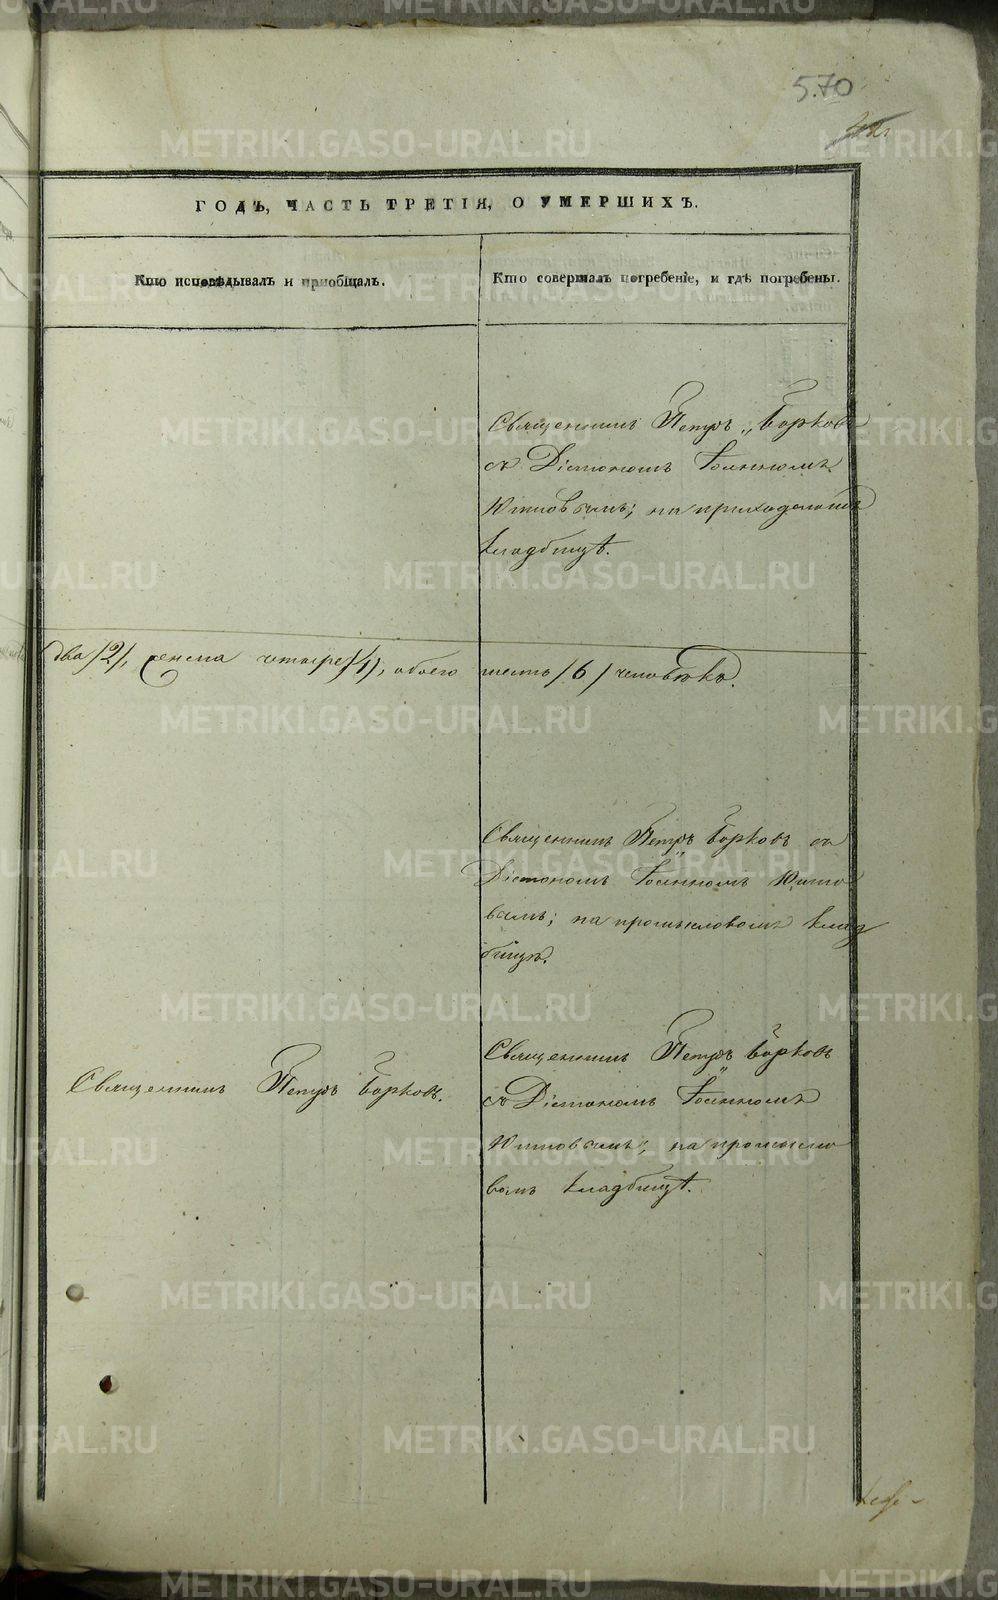 570
ГОДЪ, ЧАСТЬ ТРЕТІЯ, О УМЕРШИХЪ.
Кто исповѣдывалъ и приобщалъ.
Кто совершалъ погребеніе, и гдѣ погребены.
Священникъ Петръ Борковъ
съ Діакономъ Іоанномъ
на приходскомъ
кладбищѣ.
два /2/, женска четыре /4/, обоего шесть /6/ человѣкъ.
Священникъ Петръ Борковъ съ
Діакономъ Іоанномъ
на промысловомъ клад
бищѣ.
Священникъ Петръ Борковъ.
Священникъ Петръ Борковъ
съ Діакономъ Іоанномъ
на промысло
вомъ кладбищѣ.
METRIKI.GASO-URAL.RU